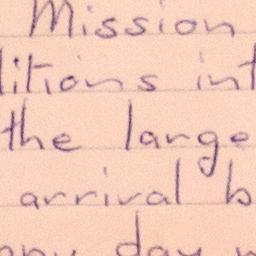 Mission
litions int
the large
arrival b
any day w